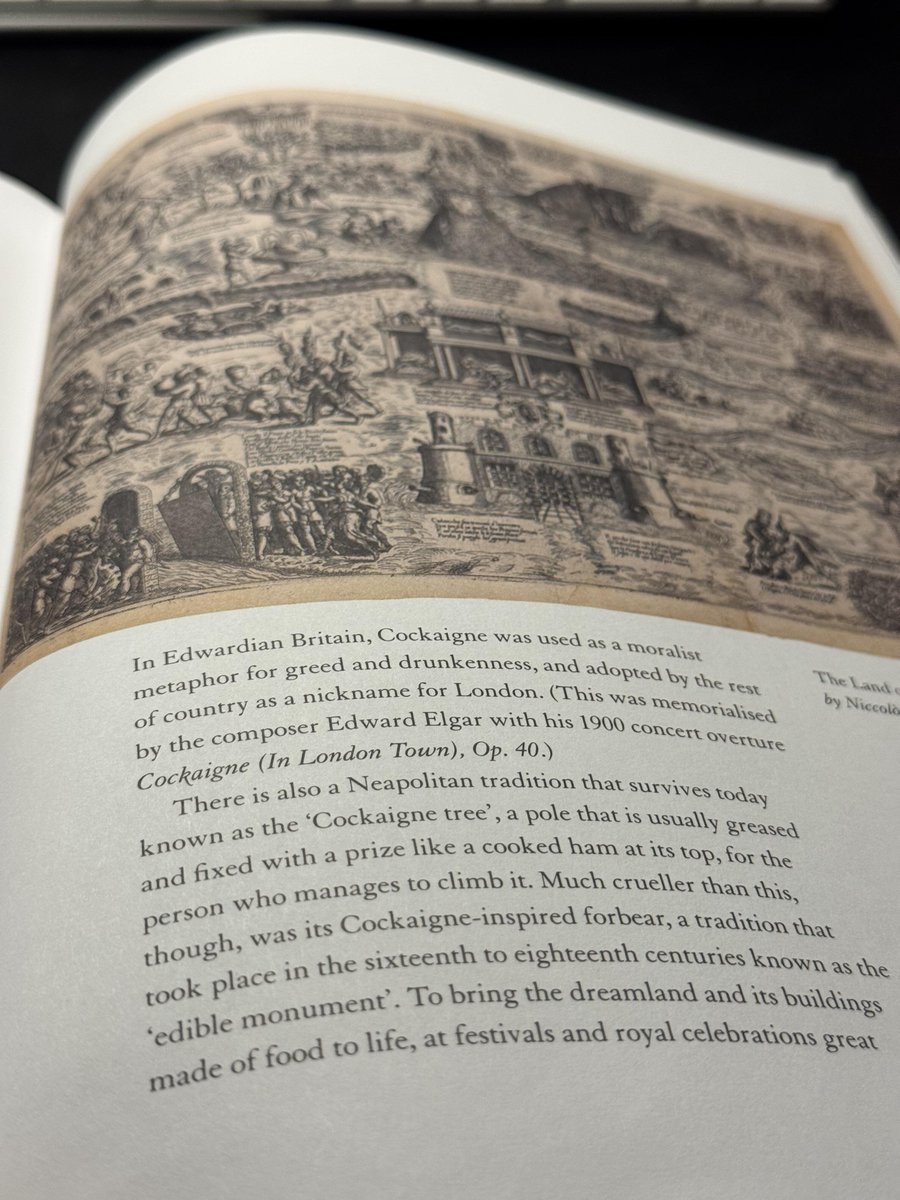 In Edwardian Britain, Cockaigne was used as a moralist
metaphor for greed and drunkenness, and adopted by the rest
of country as a nickname for London. (This was memorialised
by the composer Edward Elgar with his 1900 concert overture
Cockaigne (In London Town), Op. 40.)
There is also a Neapolitan tradition that survives today
known as the ‘Cockaigne tree’, a pole that is usually greased
and fixed with a prize like a cooked ham at its top, for the
person who manages to climb it. Much crueller than this,
though, was its Cockaigne-inspired forbear, a tradition that
took place in the sixteenth to eighteenth centuries known as the
‘edible monument’. To bring the dreamland and its buildings
made of food to life, at festivals and royal celebrations great
The Land
by Niccolò